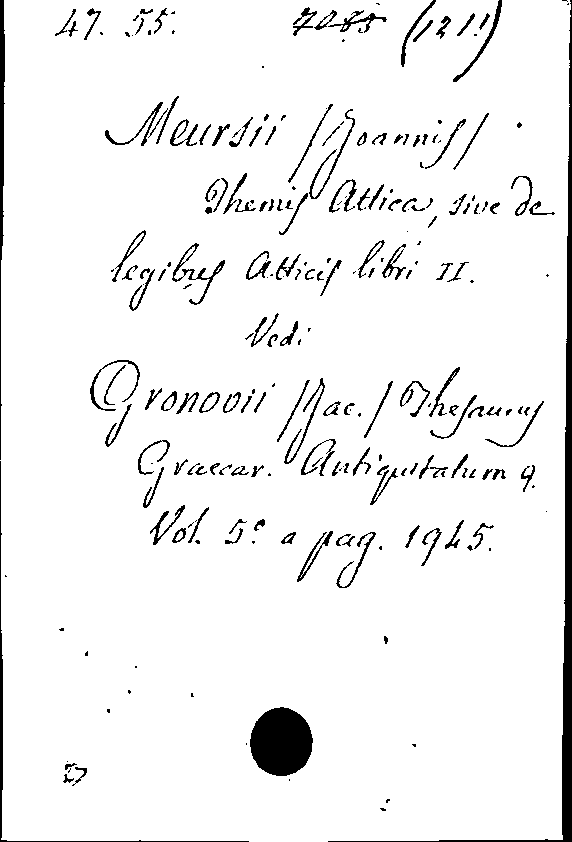 47. 55. 7085 (1211)
Meursii /Joannis/.
Themis Attica, sive de
legibus Atticis libri II.
Vedi
Gronovii /Jac./ Thesaurus
Graecar. Antiquitatum q.
Vol. 5.° a pag. 1945.